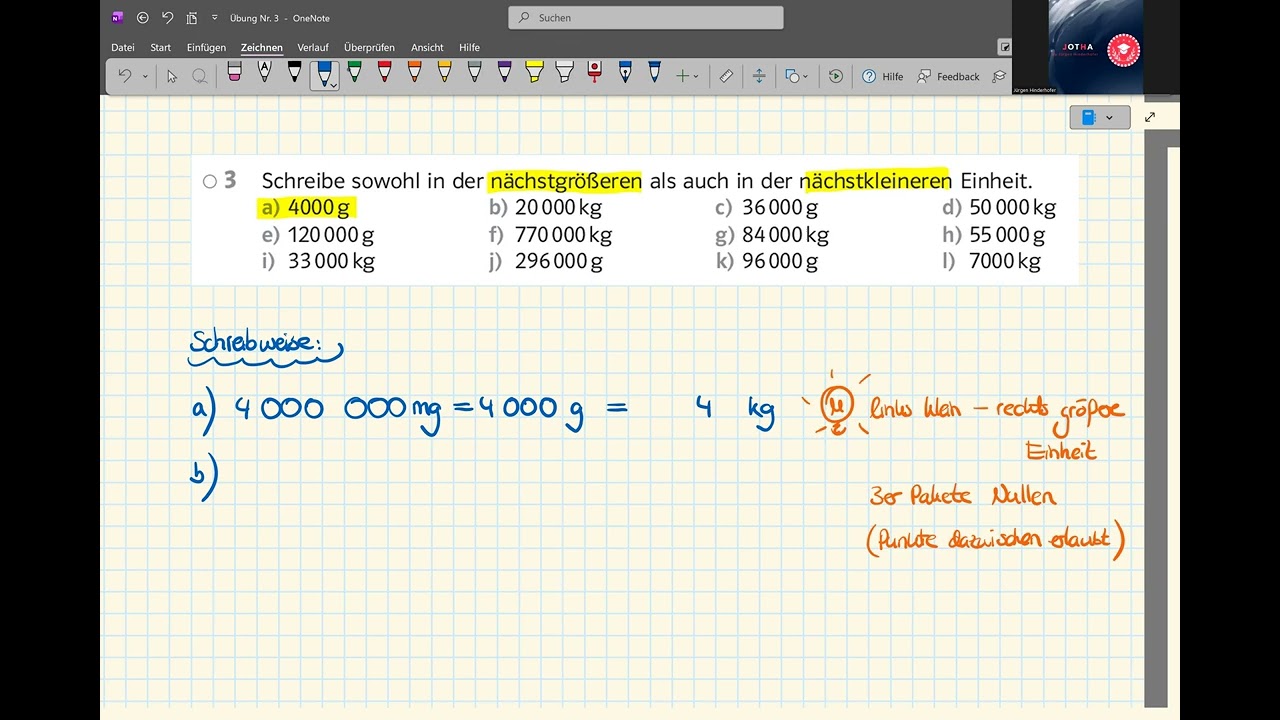 Übung Nr. 3 - OneNote
Suchen
Datei Start Einfügen Zeichnen Verlauf Überprüfen Ansicht Hilfe
Hilfe Feedback
JOTHA
Jürgen Hinderhofer
3 Schreibe sowohl in der nächstgrößeren als auch in der nächstkleineren Einheit.
a) 4000 g b) 20 000 kg c) 36 000 g d) 50 000 kg
e) 120 000 g f) 770 000 kg g) 84 000 kg h) 55 000 g
i) 33 000 kg j) 296 000 g k) 96 000 g l) 7000 kg
Schreibweise:
a) 4 000 000 mg = 4 000 g = 4 kg
links klein – rechts größere
Einheit
b)
3er Pakete Nullen
(Punkte dazwischen erlaubt)